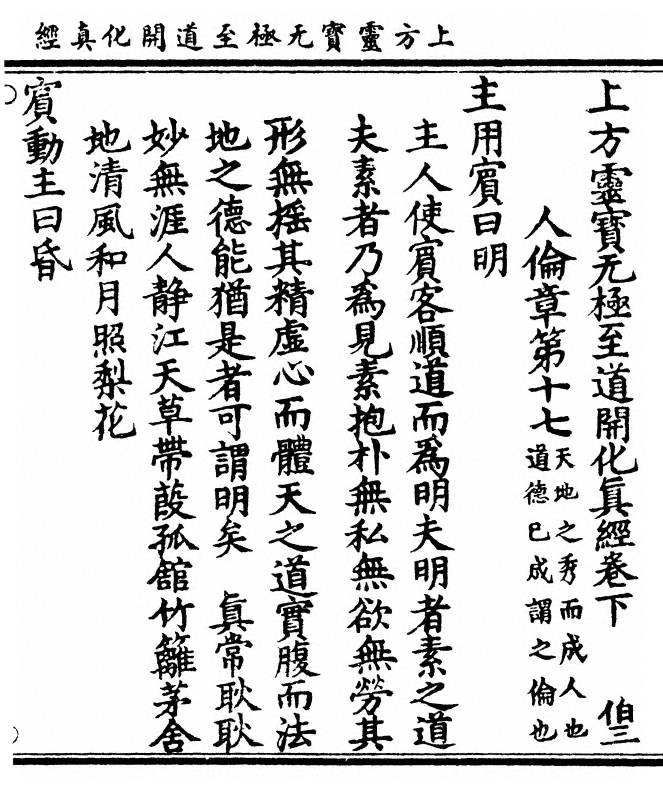 上方靈寶无極至道開化真經
上方靈寶无極至道開化眞經卷下 伯三
人倫章第十七 天地之秀而成人也
道德已成謂之倫也
主用賓曰明
主人使賓客順道而爲明夫明者素之道
夫素者乃爲見素抱朴無私無欲無勞其
形無摇其精虛心而體天之道實腹而法
地之德能猶是者可謂明矣 眞常耿耿
妙無涯人靜江天草帶葭孤舘竹籬茅舍
地清風和月照梨花
賓動主曰昏